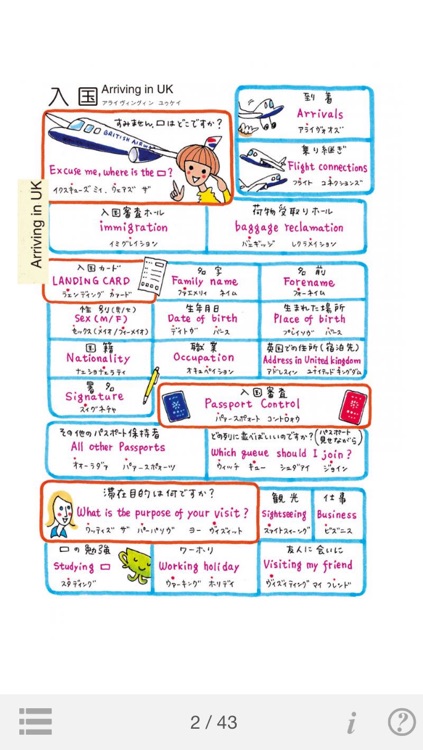 入国 Arriving in UK
アライヴィングィン ユゥケイ
Arriving in UK
すみません、□はどこですか?
BRITISH AIRWAYS
Excuse me, where is the □?
イクスキューズ ミィ, ウェァズ ザ
到着
Arrivals
アライヴォズ
乗り継ぎ
Flight connections
フライト コネクションズ
入国審査ホール
immigration
イミグレイション
荷物受取りホール
baggage reclamation
バェギッジ レクラメイション
入国カード
LANDING CARD
名字
Family name
ネイム
名前
Forename
フォーネイム
性別(男/女)
Sex (M/F)
生年月日
Date of birth
バース
生まれた場所
Place of birth
バース
国籍
Nationality
ナショナェラティ
職業
Occupation
オキュペイション
英国での住所(宿泊先)
Address in United kingdom
署名
Signature
スィグネチャ
入国審査
Passport Control
パァースポォート コントロォウ
その他のパスポート保持者
All other Passports
オオーラダァ パァースポォーツ
どの列に並べばいいのですか?(パスポート見せながら)
Which queue should I join?
ウィッチ キュー シュダアイ ジョイン
滞在目的は何ですか?
What is the purpose of your visit?
ウッティズ ザ パーパソヴ ヨー ヴィズィット
観光
Sightseeing
サイトスィーイング
仕事
Business
ビズニス
□の勉強
Studying □
スタディング
ワーホリ
Working holiday
ウァーキング ホリデイ
友人に会いに
Visiting my friend
ヴィズィティング マイ フレンド
2 / 43
i
?